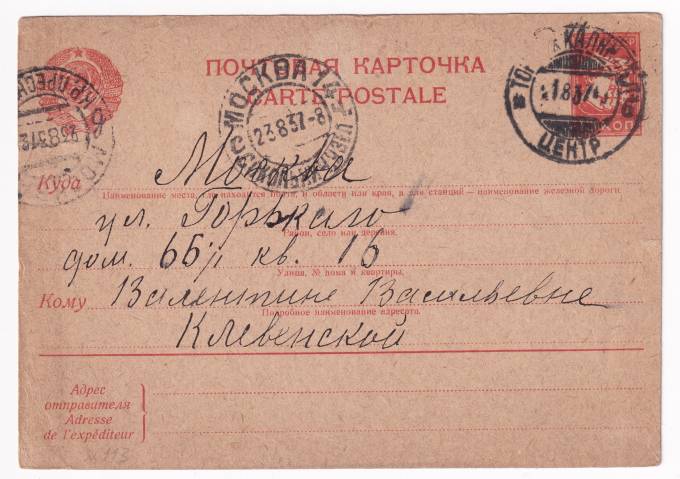 ПОЧТОВАЯ КАРТОЧКА
CARTE POSTALE
МОСКВА
23.8.37-8
ЦЕНТР
КОП
Куда Москва
Наименование места, где находится почта, и области или края, а для станций — наименование железной дороги
ул. Горькаго
Район, село или деревня.
дом. 65/1 кв. 16
Улица, № дома и квартиры.
Кому Валентине Васильевне
Подробное наименование адресата.
Клевенской
Адрес
отправителя
Adresse
de l'expéditeur
113